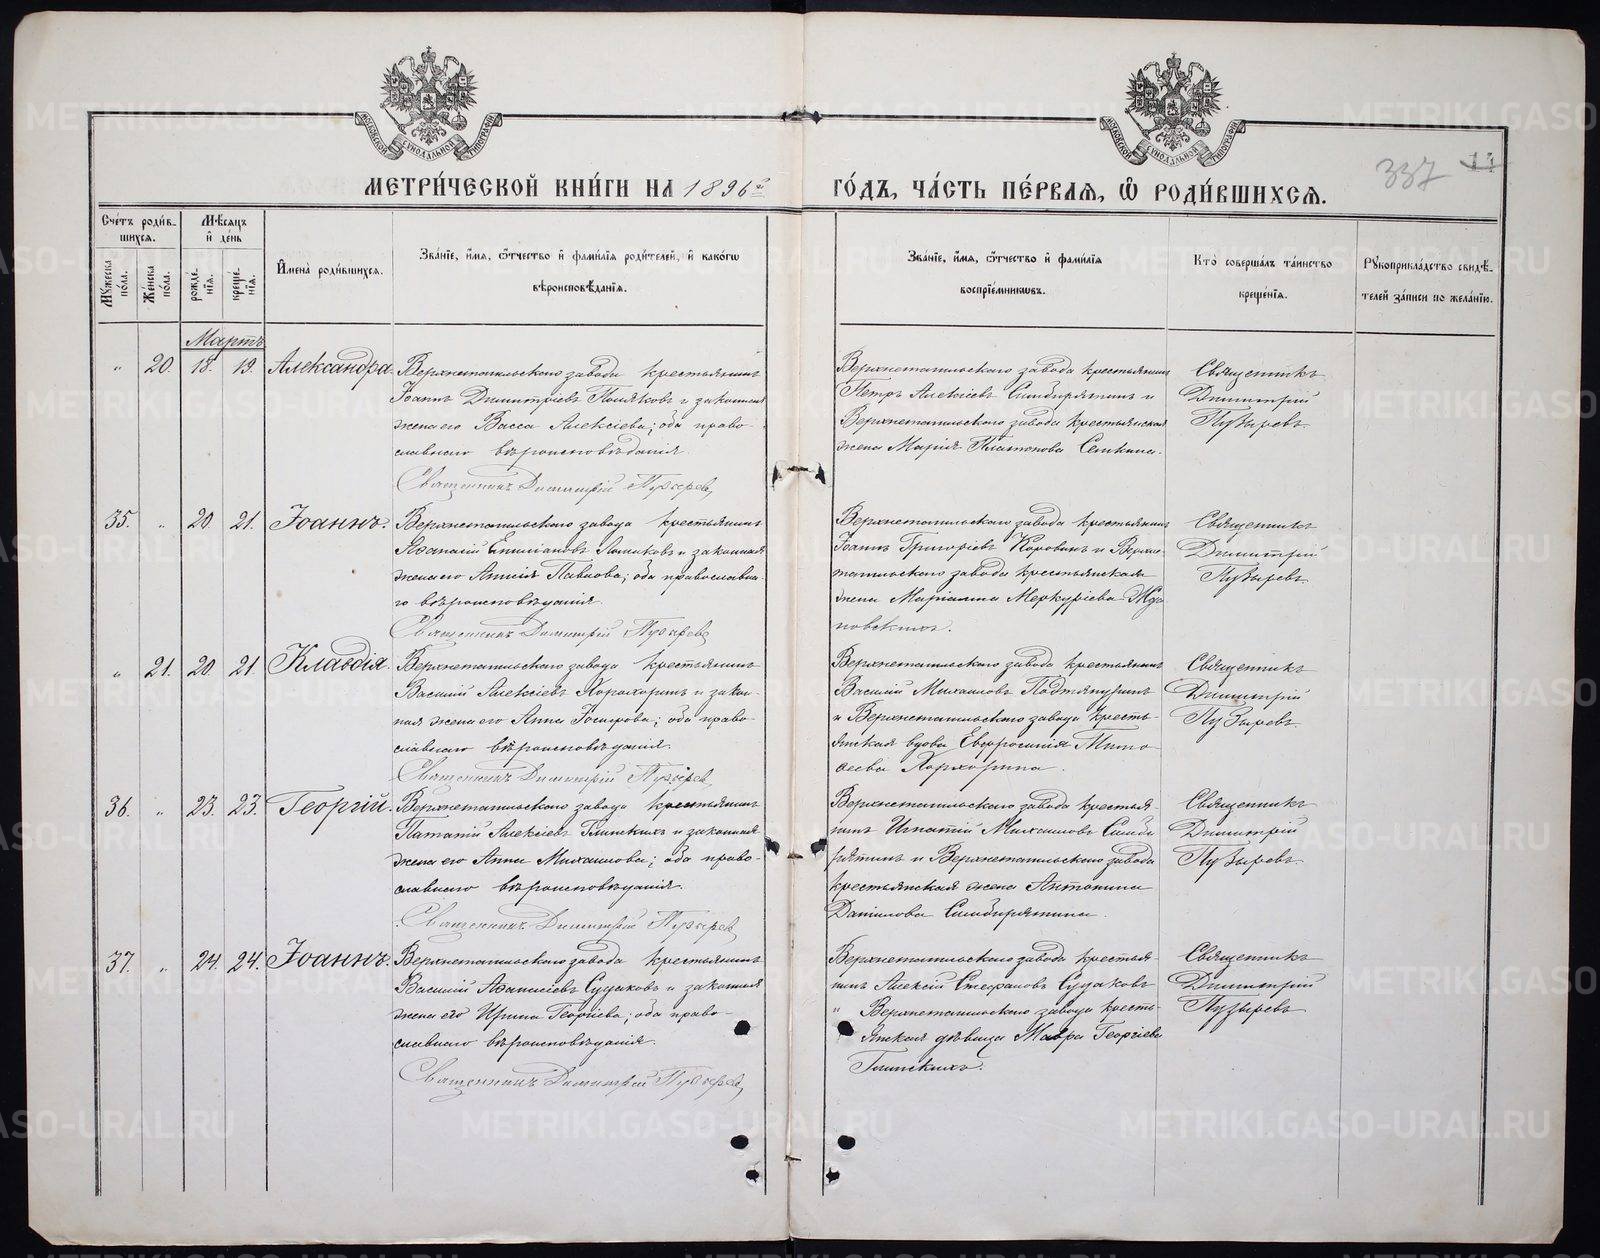 МЕТРИ́ЧЕСКОЙ КНИ́ГИ НА 1896й
ГО́ДЪ, ЧА́СТЬ ПЕ́РВАѦ, Ѽ РОДИ́ВШИХСѦ.
337
Сче́тъ роди́в-
шихсѧ.
Мѣ́сѧцъ
и҆ де́нь
Мꙋ́жеска
по́ла.
Же́нска
по́ла.
рожде́-
нїѧ.
креще́-
нїѧ.
И҆мена̀ роди́вшихсѧ.
Зва́нїе, и҆́мѧ, ѻ҆́тчество и҆ фами́лїѧ роди́телей, и҆ како́гѡ
вѣроисповѣ́данїѧ.
Зва́нїе, и҆́мѧ, ѻ҆́тчество и҆ фами́лїѧ
воспрїе́мникѡвъ.
Кто̀ соверша́лъ та́инство
креще́нїѧ.
Рꙋкоприкла́дство свидѣ́-
телей за́писи по жела́нїю.
Мартъ
" 20. 18. 19. Александра
Верхнетагильскаго завода крестьянинъ
Іоаннъ Димитріевъ Поляковъ и законная
жена его Васса Алексіева; оба право-
славнаго вѣроисповѣданія.
Священникъ Димитрій Пузыревъ
Верхнетагильскаго завода крестьянинъ
Петръ Алексіевъ Симбирятинъ и
Верхнетагильскаго завода крестьянская
жена Марія Платонова Семкина.
Священникъ
Димитрій
Пузыревъ.
35. " 20. 21. Іоаннъ.
Верхнетагильскаго завода крестьянинъ
Аѳанасій Епиѳановъ и законная
жена его Павлова; оба православна-
го вѣроисповѣданія.
Священникъ Димитрій Пузыревъ
Верхнетагильскаго завода крестьянинъ
Іоаннъ Григоріевъ Коровинъ и Верхне-
тагильскаго завода крестьянская
жена Маріанна Меркуріева
Священникъ
Димитрій
Пузыревъ.
" 21. 20. 21. Клавдія.
Верхнетагильскаго завода крестьянинъ
Василій Алексіевъ Хорхоринъ и закон-
ная жена его Анна Іосифова; оба право-
славнаго вѣроисповѣданія.
Священникъ Димитрій Пузыревъ
Верхнетагильскаго завода крестьянинъ
Василій Михаиловъ Подтягуринъ
и Верхнетагильскаго завода кресть-
янская вдова Евфросинія Тимо-
ѳеева Хорхорина.
Священникъ
Димитрій
Пузыревъ.
36. " 23. 23. Георгій.
Верхнетагильскаго завода крестьянинъ
Алексіевъ Глинскихъ и законная
жена его Анна Михаилова; оба право-
славнаго вѣроисповѣданія.
Священникъ Димитрій Пузыревъ
Верхнетагильскаго завода крестья-
нинъ Игнатій Михаиловъ Симби-
рятинъ и Верхнетагильскаго завода
крестьянская жена Антонина
Даніилова Симбирятина.
Священникъ
Димитрій
Пузыревъ.
37. " 24. 24. Іоаннъ.
Верхнетагильскаго завода крестьянинъ
Василій Аѳанасіевъ Судаковъ и законная
жена его Ирина Георгіева; оба право-
славнаго вѣроисповѣданія.
Священникъ Димитрій Пузыревъ
Верхнетагильскаго завода крестья-
нинъ Алексій Стефановъ Судаковъ
" Верхнетагильскаго завода кресть-
янская дѣвица Мавра Георгіева
Глинскихъ.
Священникъ
Димитрій
Пузыревъ
METRIKI.GASO-URAL.RU